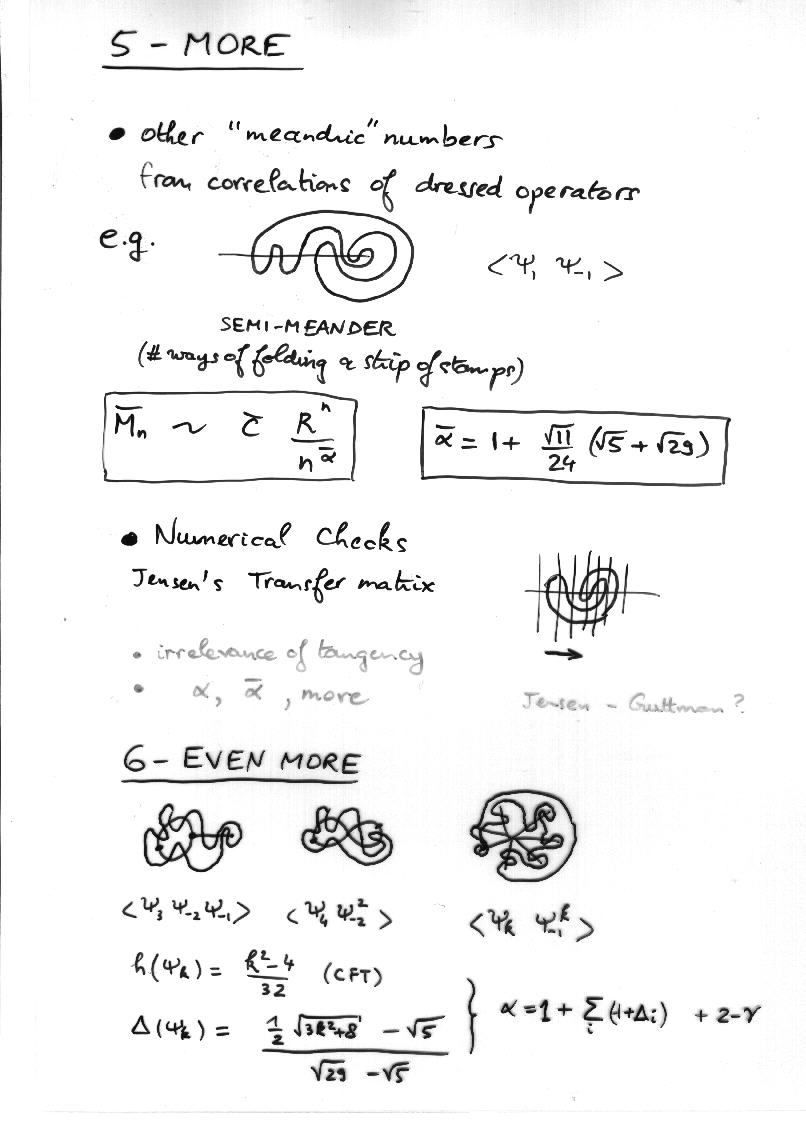 5 - MORE
• other "meandric" numbers
from correlations of dressed operators
e.g. <Ψ₁ Ψ₋₁>
SEMI-MEANDER
(# ways of folding a strip of stamps)
M̄ₙ ~ c̄ Rⁿ / n^ᾱ
ᾱ = 1 + √11/24 (√5 + √29)
• Numerical Checks
Jensen's Transfer matrix
• irrelevance of tangency
• α, ᾱ, more
Jensen - Guttman ?
6 - EVEN MORE
<Ψ₃ Ψ₋₂ Ψ₋₁> <Ψ₄ Ψ₋₂²> <Ψₖ Ψ₋₁ᵏ>
h(Ψₖ) = (k²-4)/32 (CFT)
Δ(Ψₖ) = (½ √(3k²+8) - √5) / (√29 - √5) } α = 1 + Σᵢ (-1+Δᵢ) + 2-γ